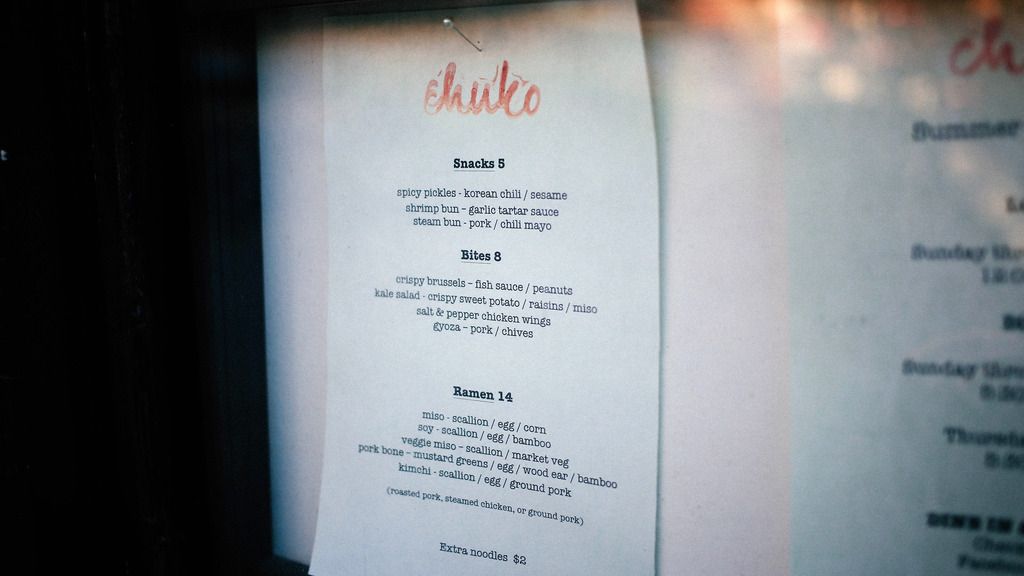 chuko
Snacks 5
spicy pickles - korean chili / sesame
shrimp bun – garlic tartar sauce
steam bun - pork / chili mayo
Bites 8
crispy brussels – fish sauce / peanuts
kale salad - crispy sweet potato / raisins / miso
salt & pepper chicken wings
gyoza – pork / chives
Ramen 14
miso - scallion / egg / corn
soy - scallion / egg / bamboo
veggie miso – scallion / market veg
pork bone – mustard greens / egg / wood ear / bamboo
kimchi - scallion / egg / ground pork
(roasted pork, steamed chicken, or ground pork)
Extra noodles $2
ch
Summer
Sunday
Sunday